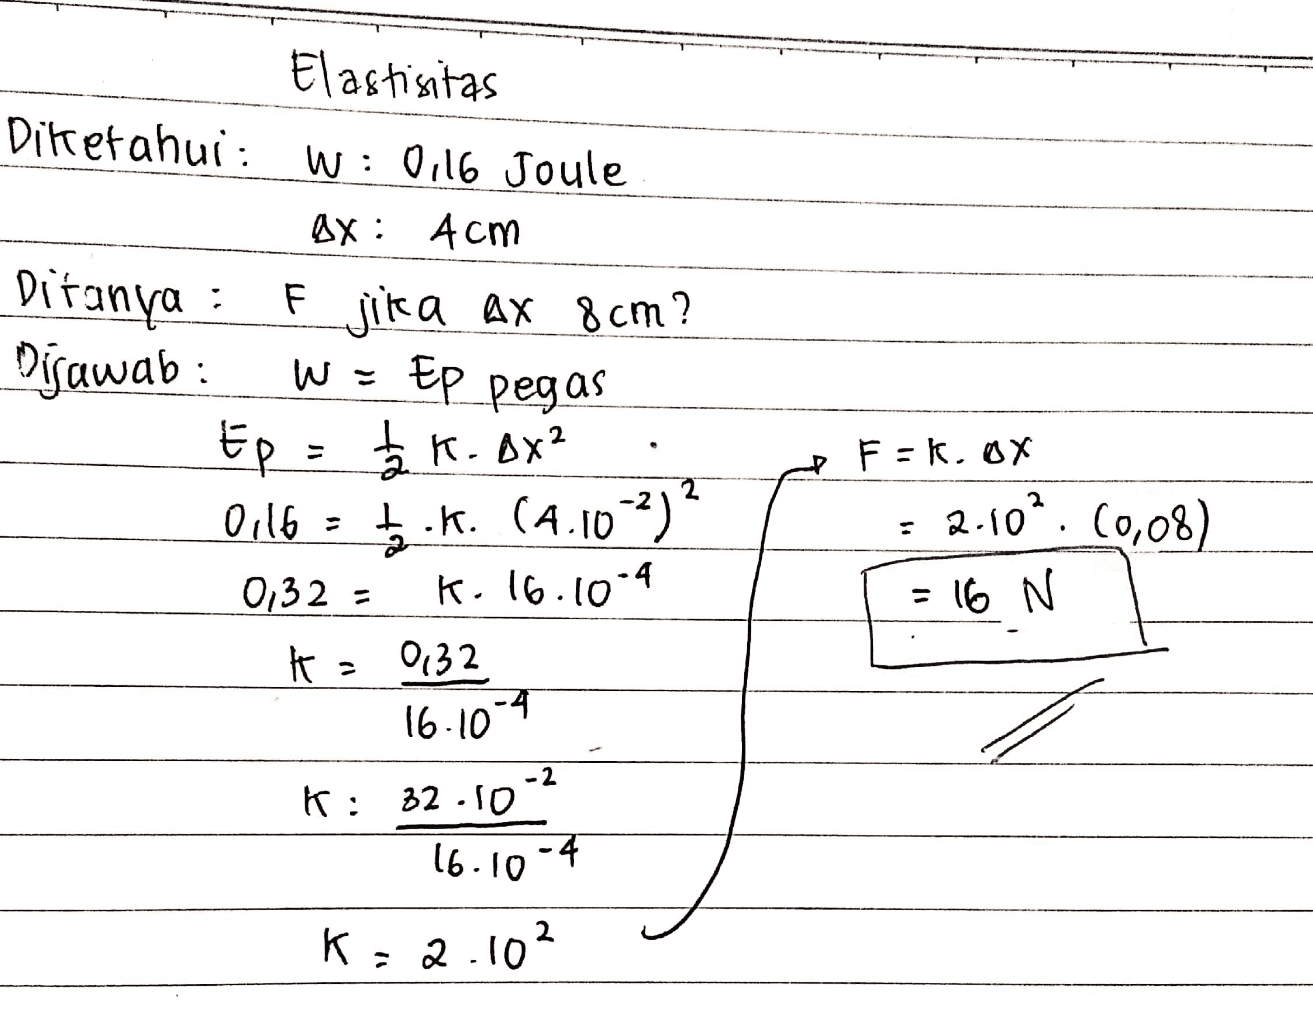 Elastisitas
Diketahui : W : 0,16 Joule
Δx : 4 cm
Ditanya : F jika Δx 8 cm?
Dijawab : W = Ep pegas
Ep = 1/2 K. Δx²
0,16 = 1/2 . K. (4.10⁻²)²
0,32 = K. 16.10⁻⁴
K = 0,32 / 16.10⁻⁴
K : 32.10⁻² / 16.10⁻⁴
K = 2.10²
F = K. Δx
= 2.10² . (0,08)
= 16 N